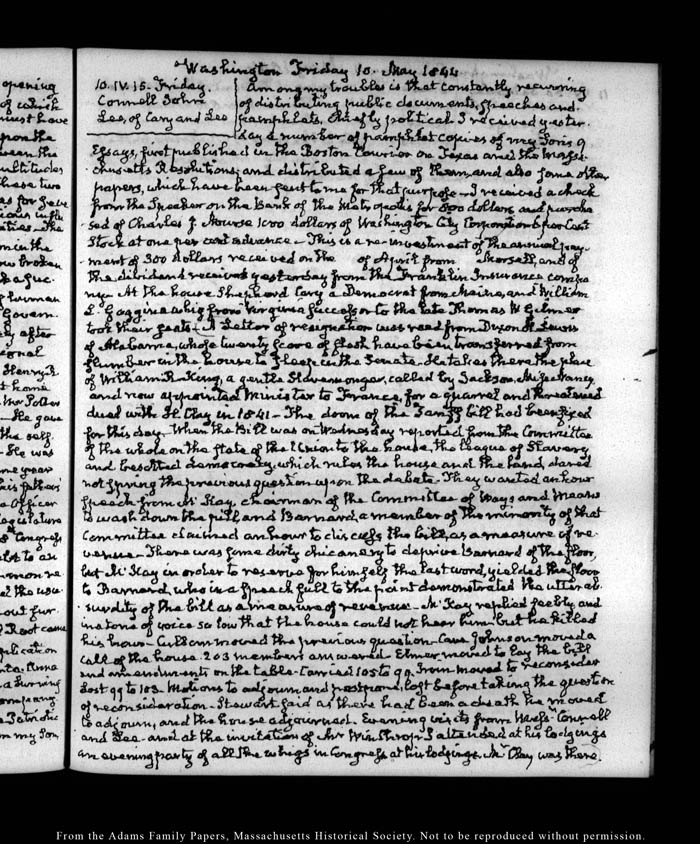 opening
of which
must have
upon the
ween the
multitudes
these two
as for
ties. The
in the
broken
human
Govern.
after
Henry R
home
He gave
the self
He was
me year
his father
Officer
Legislature
Congress
to an
out fur.
Root came
plication
a burning
Patriotic
my Son
Washington Friday 10. May 1844
10. IV. 15. Friday.
Connell John
Lee, of Cary and Lee
Among my troubles is that constantly recurring
of distributing public documents, speeches and
pamphlets, chiefly political. I received yester-
day a number of pamphlet copies of my Son's 9
Essays, first published in the Boston Courier on Texas and the Massa-
chusetts Resolutions, and distributed a few of them, and also some other
papers, which have been sent to me for that purpose. I received a check
from the Speaker on the Bank of the Metropolis for 500 dollars and purcha-
sed of Charles J. Nourse 1000 dollars of Washington City Corporation 6 per Cent
Stock at one per cent advance. This is a re-investment of the annual pay-
ment of 300 dollars received on the of April from and of
the dividend received yesterday from the Franklin Insurance compa-
ny. At the house Shepherd Cary a Democrat from Maine, and William
L. Goggin a whig from Virginia successor to the late Thomas W. Gilmer
took their seats. A Letter of resignation was read from Dixon H. Lewis
of Alabama, whose twenty score of flesh have been transferred from
slumber in the house to sleep in the Senate. He takes there the place
of William R. King, a gentle Slavemonger, called by Jackson, Miss Nancy
and now appointed Minister to France, for a quarrel and threatened
duel with H. Clay in 1841 - The doom of the Tariff bill had been fixed
for this day. When the Bill was on Wednesday reported from the Committee
of the whole on the state of the Union to the house, the league of Slavery
and besotted democracy, which rules the house and the land, dared
not spring the previous question upon the debate. They wanted an hour
speech from McKay, chairman of the Committee of Ways and Means
to wash down the pill, and Barnard, a member of the minority of that
Committee claimed an hour to discuss the bill, as a measure of re-
venue. There was some dirty chicanery to deprive Barnard of the floor,
but McKay in order to reserve for himself the last word, yielded the floor
to Barnard, who in a speech full to the point demonstrated the utter ab-
surdity of the bill as a measure of revenue. McKay replied feebly, and
in a tone of voice so low that the house could not hear him, but he killed
his hour. Cullom moved the previous question. Cave Johnson moved a
call of the house. 203 members answered. Elmer moved to lay the bill
and amendments on the table. Carried 105 to 99. From moved to reconsider
Lost 99 to 103. Motions to adjourn, and postpone, lost before taking the question
of reconsideration. Stewart said as there had been a death he moved
to adjourn, and the house adjourned. Evening visits from Messrs Connell
and Lee and at the invitation of Mr Winthrop I attended at his lodgings
an evening party of all the whigs in Congress at his lodgings. Mr Clay was there.
From the Adams Family Papers, Massachusetts Historical Society. Not to be reproduced without permission.